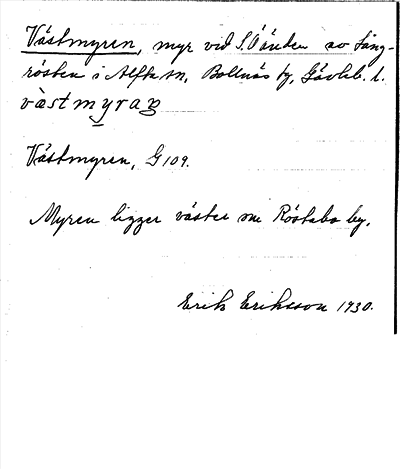 Västmyren, myr vid S. Öänden av Lång-
rösten i Alfta sn, Bollnäs fg, Gävleb. l.
västmyraɲ
Västmyren, G 109.
Myren ligger väster om Röstabo by.
Erik Eriksson 1930.